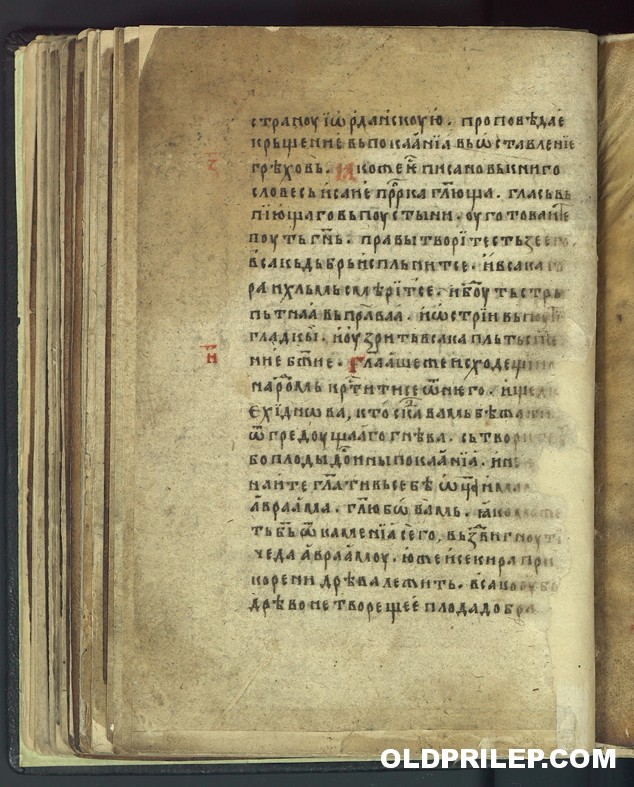 странѹ їѡрданскѹю. проповѣдае
крьщение вьпокаанїа вьѡставленїе
з грѣховь. Iакожеⷭ҇ писано вькниго
словесь исаие прⷪ҇рка гл҃юща. глась вь
пїющаго вьпѹстыни. ѹготоваите
пѹть гн҃ь. правы творїте стьзее
всака дьбрь испльнитсе. и всака
ра и хльмь смѣрїтсе. и бѹ҆ть стрь
пьтнаа вьправаа. и ѡстрїи вь
гладкы. и ѹзрить всака пльть
и҃ ние бж҃ие. Гл҃аашеже исходещи
народⷨ҇ь крⷭ҇тити се ѿ него. ищ
ехїднѡва, кто сказа вамь бѣжати
ѿ гредѹщааго гнѣва. сьтвор
бо плоды дⷭ҇оины покаанїа. и не
наите гл҃ати вь себѣ ѡц҃а имам
авраама. гл҃ю бѡ вамь. ꙗко може
ть бь҃ ѿ каменїа сего, вьздвигнѹти
чеда авраамѹ. юже и секира при
корени дрѣва лежить. всако бо
дрѣво не творещее плода добра
OLDPRILEP.COM